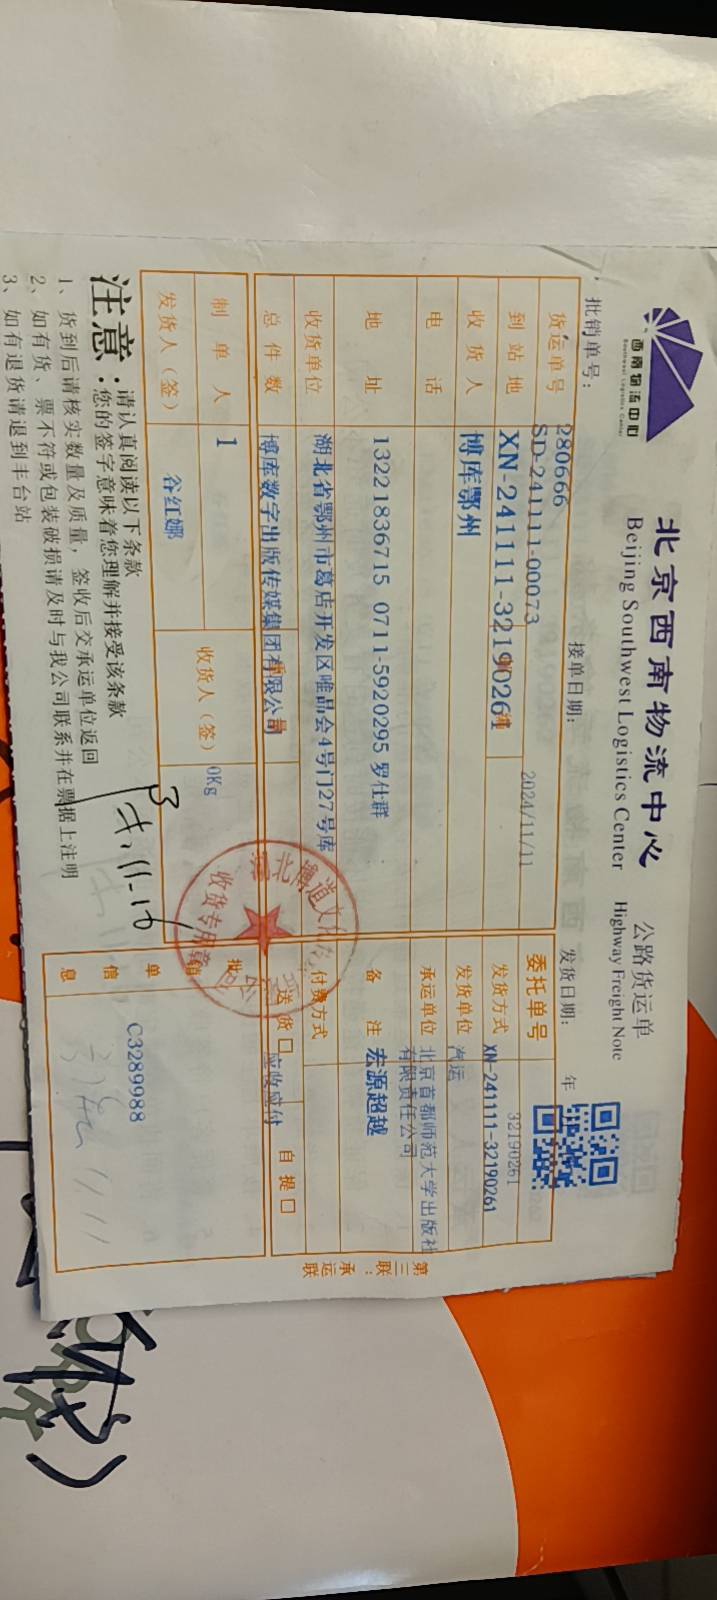 西南物流中心
Southwest Logistics Center
北京西南物流中心 公路货运单
Beijing Southwest Logistics Center Highway Freight Note
批销单号： 接单日期： 发货日期： 年
280666
货运单号 SD-241111-00073 2024/11/11 委托单号 32190261
到站地 XN-241111-32190261 发货方式 XN-241111-32190261
收货人 博库鄂州 发货单位 汽运
电话 承运单位 北京首都师范大学出版社
有限责任公司
地址 13221836715 0711-5920295 罗仕群 备注 宏源超越
收货单位 湖北省鄂州市葛店开发区唯品会4号门27号库 付费方式
总件数 博库数字出版传媒集团有限公司 送货 应收应付 自提
制单人 1 收货人（签） 0Kg 批销单信息 C3289988
发货人（签） 谷红娜
收货专用章
注意：
请认真阅读以下条款
您的签字意味着您理解并接受该条款
1、货到后请核实数量及质量，签收后交承运单位返回
2、如有货、票不符或包装破损请及时与我公司联系并在票据上注明
3、如有退货请退到丰台站
第三联：承运联
11.16
11.11